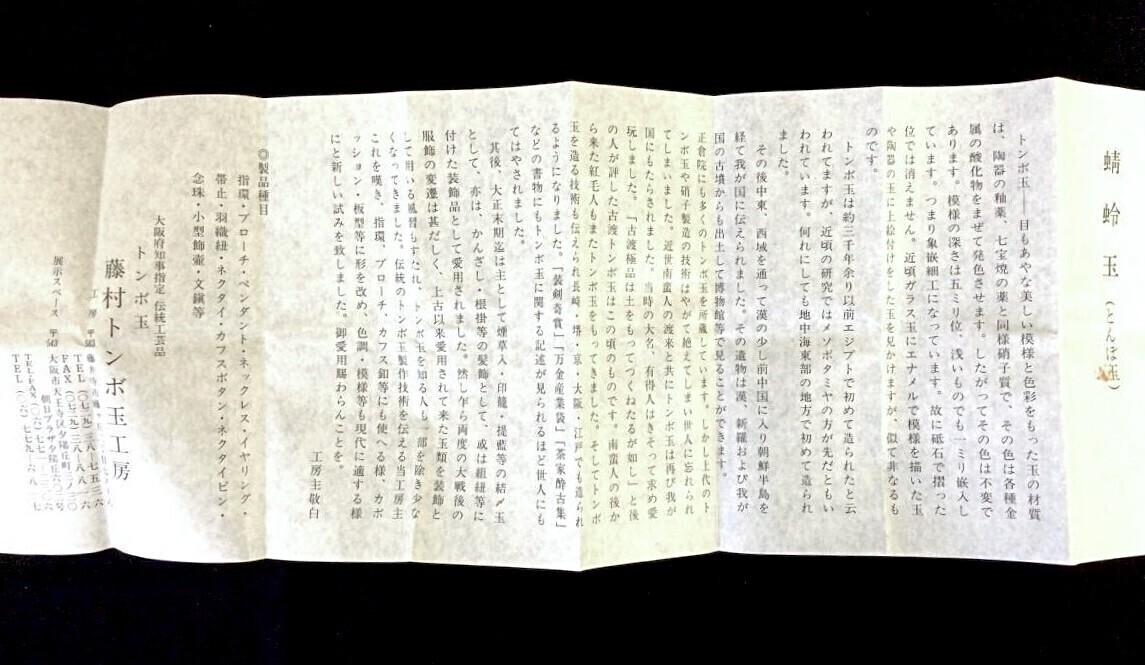 蜻蛉玉（とんぼ玉）
トンボ玉――目もあやな美しい模様と色彩をもった玉の材質
は、陶器の釉薬、七宝焼の薬と同様硝子質で、その色は各種金
属の酸化物をまぜて発色させます。したがってその色は不変で
あります。模様の深さは五ミリ位、浅いものでも一ミリ嵌入し
ています。つまり象嵌細工になっています。故に砥石で摺った
位では消えません。近頃ガラス玉にエナメルで模様を描いた玉
や陶器の玉に上絵付けをした玉を見かけますが、似て非なるも
のです。
トンボ玉は約三千年余り以前エジプトで初めて造られたと云
われてますが、近頃の研究ではメソポタミヤの方が先だともい
われています。何れにしても地中海東部の地方で初めて造られ
ました。
その後中東、西域を通って漢の少し前中国に入り朝鮮半島を
経て我が国に伝えられました。その遺物は漢、新羅および我が
国の古墳からも出土して博物館等で見ることができます。
正倉院にも多くのトンボ玉を所蔵しています。しかし上代のト
ンボ玉や硝子製造の技術はやがて絶えてしまい世人に忘れられ
てしまいました。近世南蛮人の渡来と共にトンボ玉は再び我が
国にもたらされました。当時の大名、有得人はきそって求め愛
玩しました。「古渡極品は土をもってつくねたるが如し」と後
の人が評した古渡トンボ玉はこの頃のものです。南蛮人の後か
ら来た紅毛人もまたトンボ玉をもってきました。そしてトンボ
玉を造る技術も伝えられ長崎・堺・京・大阪・江戸でも造られ
るようになりました。「装剣奇賞」「万金産業袋」「茶家酔古集」
などの書物にもトンボ玉に関する記述が見られるほど世人にも
てはやされました。
其後、大正末期迄は主として煙草入・印籠・提籃等の結〆玉
として、亦は、かんざし・根掛等の髪飾として、或は組紐等に
付けた装飾品として愛用されました。然し乍ら両度の大戦後の
服飾の変遷は甚だしく、上古以来愛用されて来た玉類を装飾と
して用いる風習もすたれ、トンボ玉を知る人も一部を除き少な
くなってきました。伝統のトンボ玉製作技術を伝える当工房主
これを嘆き、指環、ブローチ、カフス釦等にも使へる様、カボ
ッション・板型等に形を改め、色調・模様等も現代に適する様
にと新しい試みを致しました。御愛用賜わらんことを。
工房主敬白
◎製品種目
指環・ブローチ・ペンダント・ネックレス・イヤリング・
帯止・羽織紐・ネクタイ・カフスボタン・ネクタイピン・
念珠・小型飾壷・文鎮等
大阪府知事指定 伝統工芸品
トンボ玉
藤村トンボ玉工房
工房 〒583
展示スペース 〒543 大阪市天王寺区夕陽丘町
朝日プラザ夕陽丘